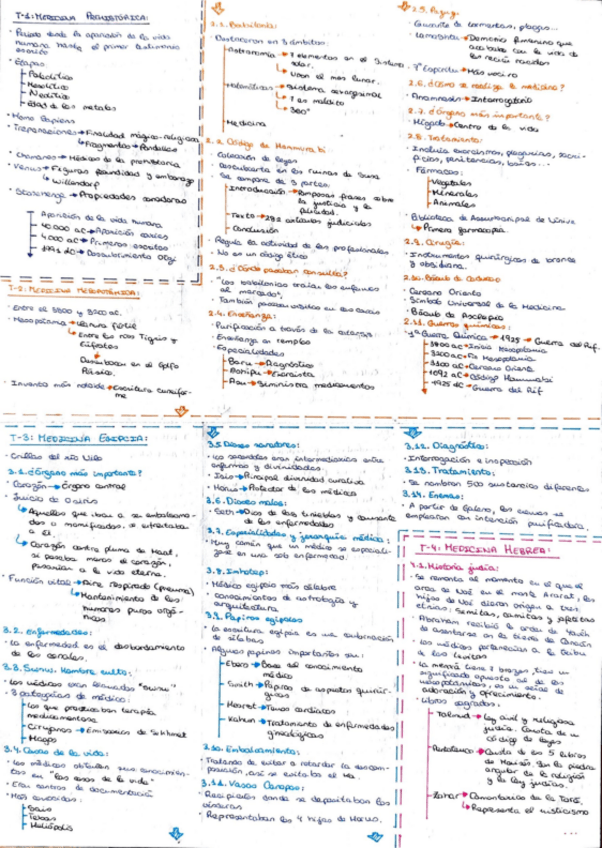 T-1: MEDICINA PREHISTÓRICA:
· Periodo desde la aparición de la vida
humana hasta el primer testimonio
escrito
· Etapas:
Paleolítico
Mesolítico
Neolítico
Edad de los metales
· Homo Sapiens
· Trepanaciones → Finalidad mágico-religiosa
Fragmentos → Pendulos
· Chamanes → Médicos de la prehistoria
· Venus → Figuras fecundidad y embarazo
Willendorf
· Stonehenge → Propiedades sanadoras
Aparición de la vida humana
40.000 aC → Aparición
4.000 aC → Primeros escritos
1991 dC → Descubrimiento Otzi
T-2: MEDICINA MESOPOTÁMICA:
· Entre el 3900 y 3200 aC.
· Mesopotamia → llanura fértil
Entre los ríos Tigris y
Éufrates
Desembocan en el Golfo
Pérsico.
· Invento más notable → Escritura cuneifor-
me
2.1. Babilonia:
· Destacaron en 3 ámbitos:
Astronomía → 7 elementos en el Sistema
solar.
Usan el mes lunar.
Matemáticas → Sistema sexagesimal
7 es maldito
360°
Medicina
2.2. Código de Hammurabi
· Colección de leyes
· Descubierta en las ruinas de Susa
· Se compone de 3 partes:
Introducción → Pomposas frases sobre
la justicia y la
felicidad.
Texto → 282 artículos judiciales
Conclusión
· Regula la actividad de los profesionales
· No es un código ético
2.3. ¿Dónde pasaban consulta?
· "Los babilonios traían los enfermos
al mercado",
· También pasaban visitas en las casas
2.4. Enseñanza:
· Purificación a través de la catarsis
· Enseñanza en templos
· Especialidades
Baru → Diagnóstico
Ashipu → Exorcista
Asu → Suministra medicamentos
2.5. Pazuzu:
· Causante de tormentas, plagas...
· Lamashtu → Demonio femenino que
acababa con la vida de
los recién nacidos
· 7º Espíritu → Más vocivo
2.6. ¿Cómo se realiza la medicina?
· Anamnesis → Interrogatorio
2.7. ¿Órgano más importante?
· Hígado → Centro de la vida
2.8. Tratamiento:
· Incluía exorcismos, plegarias, sacri-
ficios, penitencias, baños...
· Fármacos:
Vegetales
Minerales
Animales
· Biblioteca de Assurbanipal de Nínive
Primera farmacopea.
2.9. Cirugía:
· Instrumentos quirúrgicos de bronce
y obsidiana.
2.10. Báculo de Caduceo
· Cercano Oriente
· Símbolo Universal de la Medicina
· Báculo de Asclepio
2.11. Guerras químicas:
· 1ª Guerra Química → 1925 → Guerra del Rif.
3900 aC → Inicio Mesopotamia
3200 aC → Fin Mesopotamia
3100 aC → Cercano Oriente
1692 aC → Código Hammurabi
1925 dC → Guerra del Rif
T-3: MEDICINA EGIPCIA:
· Orillas del río Nilo
3.1. ¿Órgano más importante?
· Corazón → Órgano central
· Juicio de Osiris
Aquellos que iban a ser embalsama-
dos o momificados, se enfrentaban
a él.
Corazón contra pluma de Maat,
si pesaba menos el corazón,
pasarían a la vida eterna.
· Función vital → Aire respirado (pneuma)
Mantenimiento de los
humores puros orgá-
nicos
3.2. Enfermedades:
· La enfermedad es el desbordamiento
de los canales.
3.3. Sunu. Hombre culto:
· Los médicos eran llamados "Sunu"
· 3 categorías de médico:
Los que practicaban terapia
medicamentosa
Cirujanos → Emisarios de Sekhmet
Magos
3.4. Casas de la vida:
· Los médicos obtenían sus conocimien-
tos en "las casas de la vida"
· Eran centros de documentación
· Más conocidas:
Sais
Tebas
Heliópolis
3.5 Dioses sanadores:
· Los sacerdotes eran intermediarios entre
enfermo y divinidades.
· Isis → Principal divinidad curativa
· Horus → Protector de los médicos
3.6. Dioses malos:
· Seth → Dios de las tinieblas y causante
de las enfermedades
3.7. Especialidades y jerarquía médica:
· Muy común que un médico se especiali-
zase en una sola enfermedad.
3.8. Imhotep:
· Médico egipcio más célebre
· Conocimientos de astrología y
arquitectura
3.9. Papiros egipcios
· La escritura egipcia es una combinación
de sílabas
· Algunos papiros importantes son:
Ebers → Base del conocimiento
médico
Smith → Papiro de aspectos quirúr-
gicos
Hearst → Temas cardiacos
Kahun → Tratamiento de enfermedades
ginecológicas
3.10. Embalsamamiento:
· Tratando de evitar o retardar la descom-
posición, así se evitaba el
3.11. Vasos Canopos:
· Recipientes donde se depositaban las
vísceras
· Representaban los 4 hijos de Horus.
3.12. Diagnóstico:
· Interrogación e inspección
3.13. Tratamiento:
· Se nombran 500 sustancias diferentes
3.14. Enemas:
· A partir de Galeno, los enemas se
emplearon con intención purificadora.
T-4: MEDICINA HEBREA:
4.1. Historia judía:
· Se remonta al momento en el que el
arca de Noé en el monte Ararat, los
hijos de Noé dieron origen a tres
etnias: Semitas, camitas y jafetitas
· Abraham recibió la orden de Yavéh
de asentarse en la tierra de Canaán
· Los médicos pertenecían a la tribu
de los levitas
· La menorá tiene 7 brazos, tiene un
significado opuesto al de los
mesopotámicos, es un señal de
adoración y ofrecimiento.
· Libros sagrados:
Talmud → Ley civil y religiosa
judía. Consta de un
código de leyes
Pentateuco → Consta de los 5 libros
de Moisés. Son la piedra
angular de la religión
y la ley judías.
Zohar → Comentarios de la Torá.
Representa el misticismo